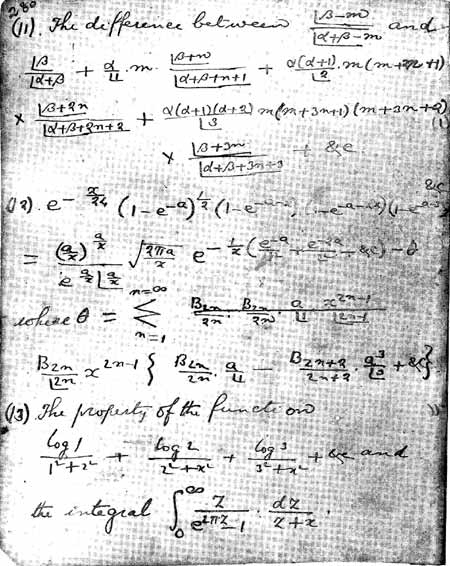 280
(11). The difference between |β−m / |α+β−m and
|β / |α+β + α/|1 . m . |β+n / |α+β+n+1 + α(α+1)/|2 . m(m+2n+1)
× |β+2n / |α+β+2n+2 + α(α+1)(α+2)/|3 m(m+3n+1)(m+3n+2)
× |β+3n / |α+β+3n+3 + &c
(12). e^{−x/24} (1−e^{−a})^{1/2} (1−e^{−a−x}) (1−e^{−a−2x}) (1−e^{−a−3x}) &c
= (a/x)^{a/x} / e^{a/x} |a/x √(2πa/x) e^{−1/x (e^{−a}/1² + e^{−2a}/2² + &c) − θ}
where θ = Σ_{n=1}^{n=∞} B2n/2n . B2n/2n . a/|1 x^{2n−1}/|2n−1
B2n/|2n x^{2n−1} { B2n/2n . a/|1 − B2n+2/2n+2 . a³/|3 + &c }.
(13). The property of the function
log 1/1²+x² + log 2/2²+x² + log 3/3²+x² + &c and
the integral ∫_0^∞ z/e^{2πz}−1 . dz/z+x .